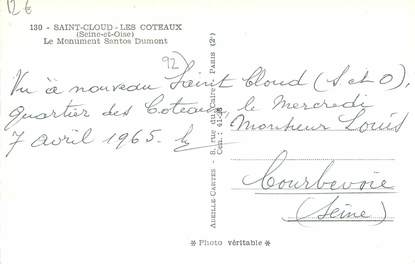 12 €
130 - SAINT-CLOUD - LES COTEAUX
(Seine-et-Oise)
Le Monument Santos Dumont
92)
Vu à nouveau Saint Cloud (S et O),
quartier des Coteaux, le Mercredi
7 avril 1965.
Monsieur Louis
Courbevoie
(Seine)
ABEILLE-CARTES - 8, rue du Caire - PARIS (2e)
Cen. : 41-
* Photo véritable *